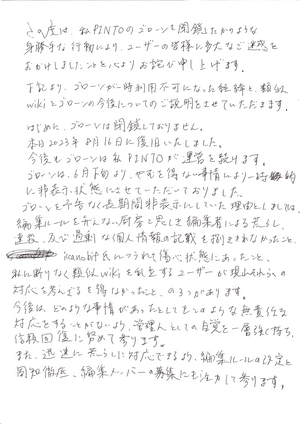 この度は、私PINTOのゴローンを閉鎖したかのような
身勝手な行動により、ユーザーの皆様に多大なご迷惑を
おかけしましたことを心よりお詫び申し上げます。
下記より、ゴローンが一時利用不可になった経緯と、類似
wikiとゴローンの今後についてのご説明をさせていただきます。
はじめに、ゴローンは閉鎖しておりません。
本日2023年8月16日に復旧いたしました。
今後もゴローンは私PINTOが運営を続けます。
ゴローンは、6月下旬より、やむを得ない事情により一時的
に非表示状態にさせていただいておりました。
ゴローンを予告なく長期間非表示にしていた理由としましては、
編集ルールを守らない厨房と思しき編集者による荒らし、
連投、及び過剰な個人情報の記載を抑えきれなかったこと、
kanabit氏にフラれて傷心状態にあったこと、
私に断りなく類似wikiを乱立するユーザーが現れそれらの
対応を考えざるを得なかったこと、の3つがあります。
今後は、どのような事情があったとしてもこのような無責任な
対応をすることがないよう、管理人としての自覚を一層強く持ち、
信頼回復に努めて参ります。
また、迅速に荒らしに対応できるよう、編集ルールの改定と
周知徹底、編集メンバーの募集にも注力して参ります。